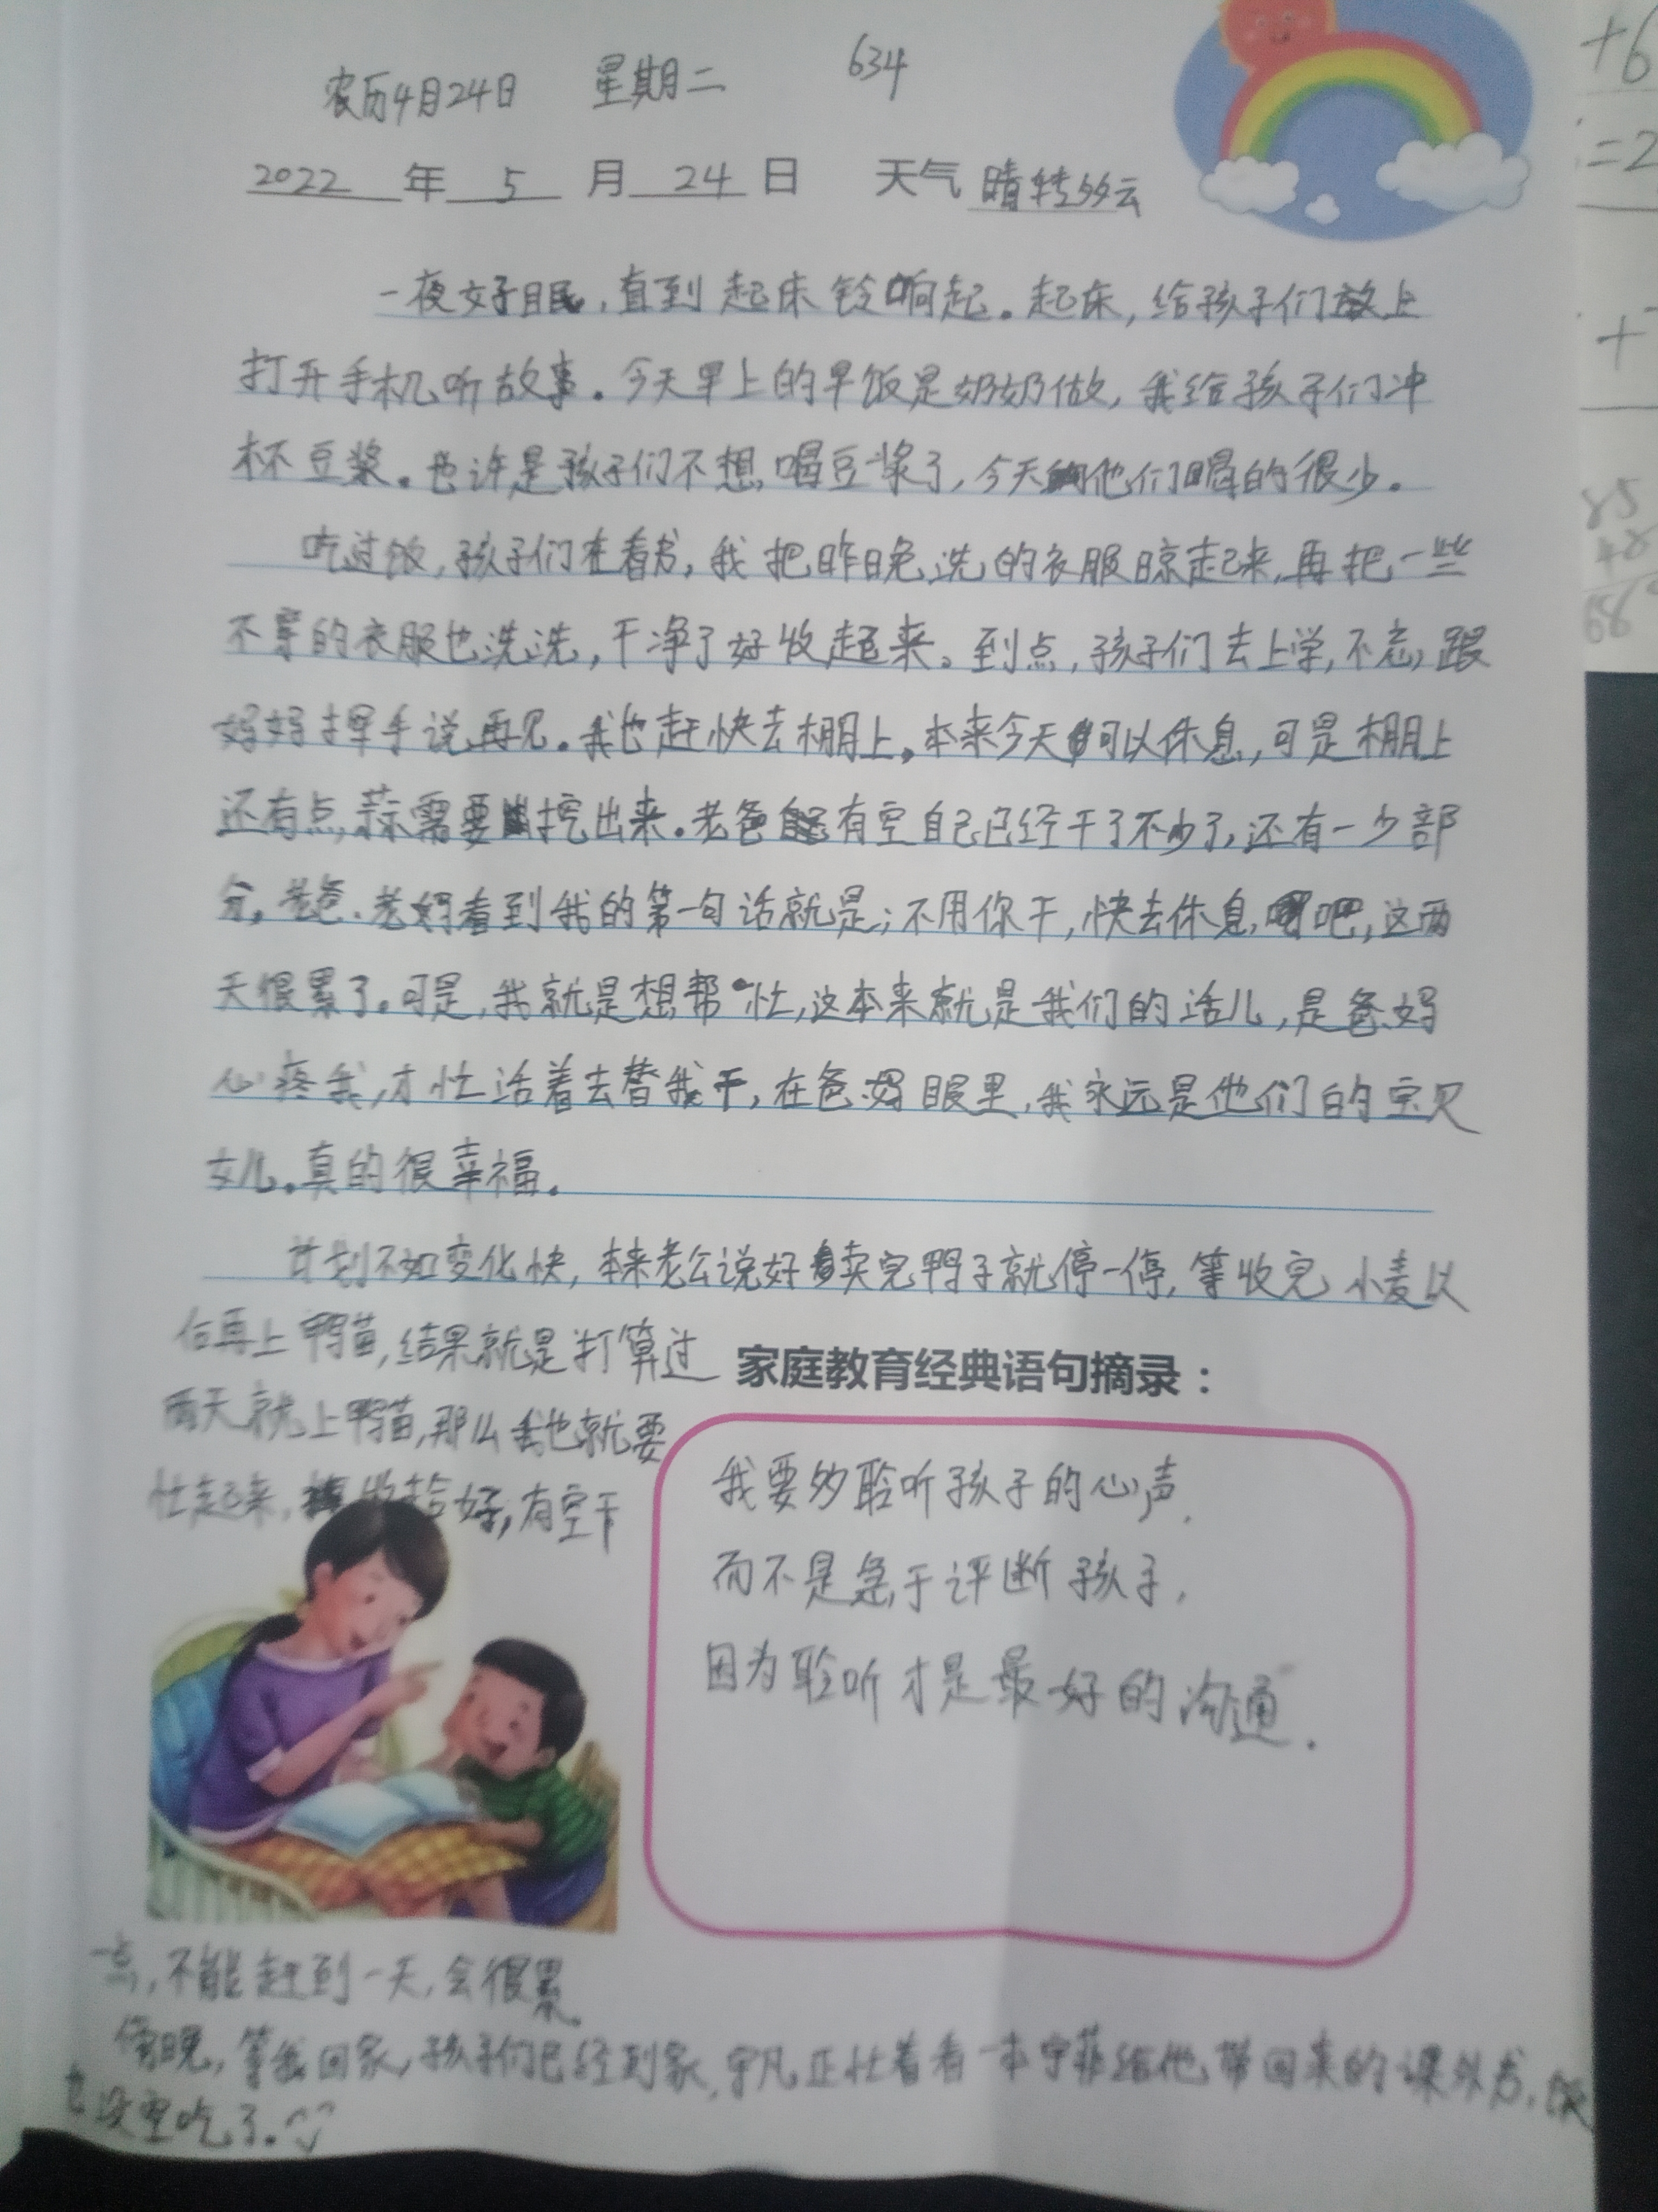 农历4月24日 星期二 634
2022 年 5 月 24 日 天气 晴转多云
一夜好眠，直到起床铃响起。起床，给孩子们放上
打开手机听故事。今天早上的早饭是奶奶做，我给孩子们冲
杯豆浆。也许是孩子们不想喝豆浆了，今天他们喝的很少。
吃过饭，孩子们在看书，我把昨晚洗的衣服晾起来，再把一些
不穿的衣服也洗洗，干净了好收起来。到点，孩子们去上学，不忘跟
妈妈挥手说再见。我也赶快去棚上。本来今天可以休息，可是棚上
还有点蒜需要挖出来。老爸有空自己已经干了不少了，还有一少部
分，老爸、老妈看到我的第一句话就是；不用你干，快去休息吧，这两
天很累了。可是，我就是想帮忙，这本来就是我们的活儿，是爸妈
心疼我，才忙活着去替我干，在爸妈眼里，我永远是他们的宝贝
女儿。真的很幸福。
计划不如变化快，本来老公说好卖完鸭子就停一停，等收完小麦以
后再上鸭苗，结果就是打算过
两天就上鸭苗，那么我也就要
忙起来，收拾好，有空干
家庭教育经典语句摘录：
我要多聆听孩子的心声，
而不是急于评断孩子，
因为聆听才是最好的沟通.
一点，不能赶到一天，会很累。
傍晚，等我回家，孩子们已经到家，宇凡正忙着看一本宇菲给他带回来的课外书，饭
也没空吃了。
+6
=2
+
85
+
68